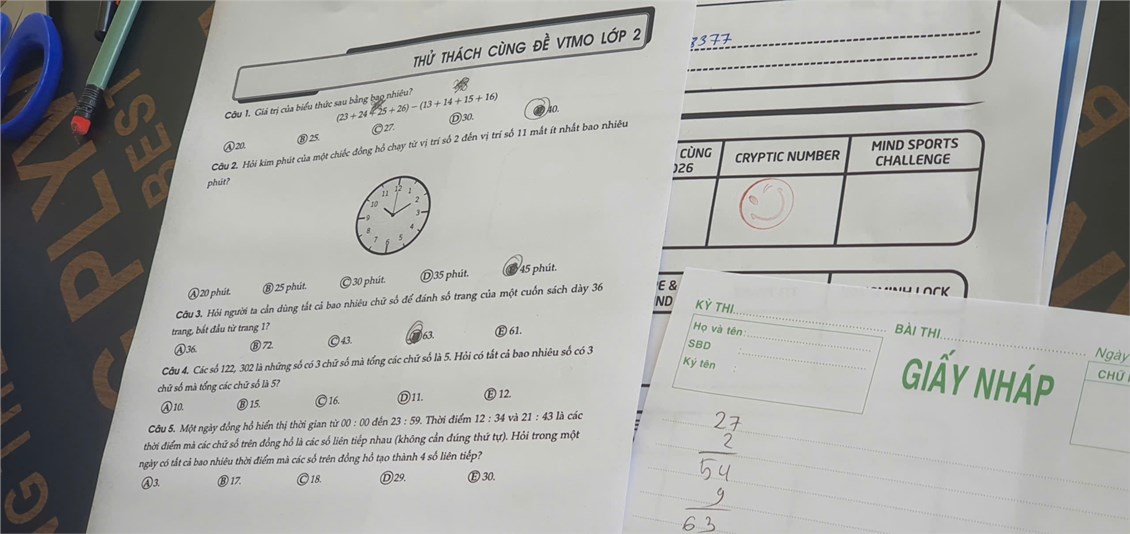 THỬ THÁCH CÙNG ĐỀ VTMO LỚP 2
Câu 1. Giá trị của biểu thức sau bằng bao nhiêu?
(23 + 24 + 25 + 26) − (13 + 14 + 15 + 16)
Ⓐ 20. Ⓑ 25. Ⓒ 27. Ⓓ 30. 40.
Câu 2. Hỏi kim phút của một chiếc đồng hồ chạy từ vị trí số 2 đến vị trí số 11 mất ít nhất bao nhiêu
phút?
12
11 1
10 2
9 3
8 4
7 6 5
Ⓐ 20 phút. Ⓑ 25 phút. Ⓒ 30 phút. Ⓓ 35 phút. 45 phút.
Câu 3. Hỏi người ta cần dùng tất cả bao nhiêu chữ số để đánh số trang của một cuốn sách dày 36
trang, bắt đầu từ trang 1?
Ⓐ 36. Ⓑ 72. Ⓒ 43. 63. Ⓔ 61.
Câu 4. Các số 122, 302 là những số có 3 chữ số mà tổng các chữ số là 5. Hỏi có tất cả bao nhiêu số có 3
chữ số mà tổng các chữ số là 5?
Ⓐ 10. Ⓑ 15. Ⓒ 16. Ⓓ 11. Ⓔ 12.
Câu 5. Một ngày đồng hồ hiển thị thời gian từ 00 : 00 đến 23 : 59. Thời điểm 12 : 34 và 21 : 43 là các
thời điểm mà các chữ số trên đồng hồ là các số liên tiếp nhau (không cần đúng thứ tự). Hỏi trong một
ngày có tất cả bao nhiêu thời điểm mà các số trên đồng hồ tạo thành 4 số liên tiếp?
Ⓐ 3. Ⓑ 17. Ⓒ 18. Ⓓ 29. Ⓔ 30.
3377
CÙNG
026
CRYPTIC NUMBER
MIND SPORTS
CHALLENGE
E &
ND
LOCK
KỲ THI
BÀI THI
Ngày
Họ và tên:
SBD :
Ký tên :
GIẤY NHÁP
CHỮ
27
2
54
9
63
PLAY
BEST